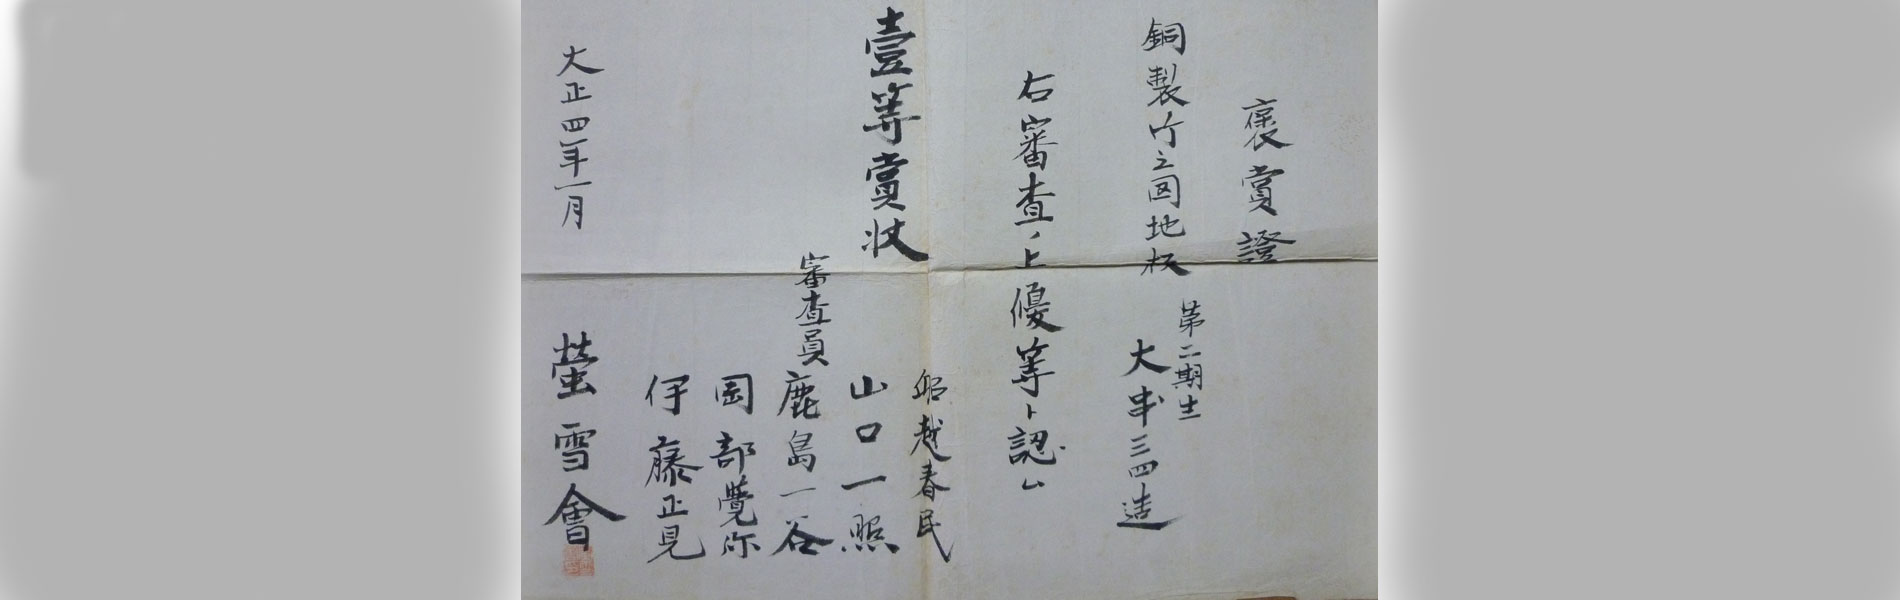 褒賞證
銅製竹之図地板
第二期生
大串三四造
右審査ノ上優等ト認ム
壹等賞状
船越春民
山口一照
審査員
鹿島一谷
岡部覺弥
伊藤正見
大正四年一月
螢雪會